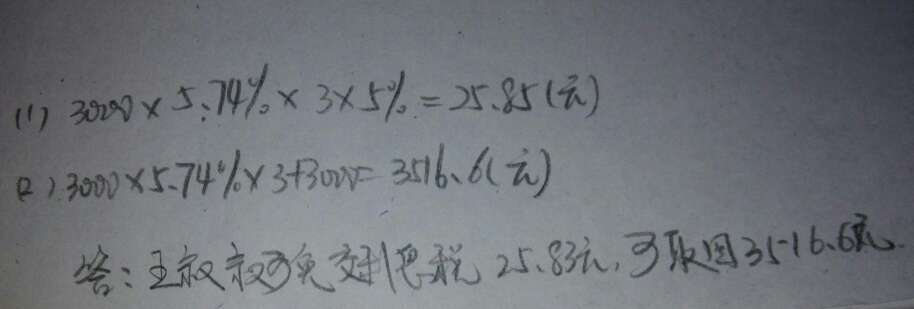 (1) 3000×5.74%×3×5%=25.85(元)
(2) 3000×5.74%×3+3000=3516.6(元)
答:王叔叔可免交利息税25.83元,可取回3516.6元.